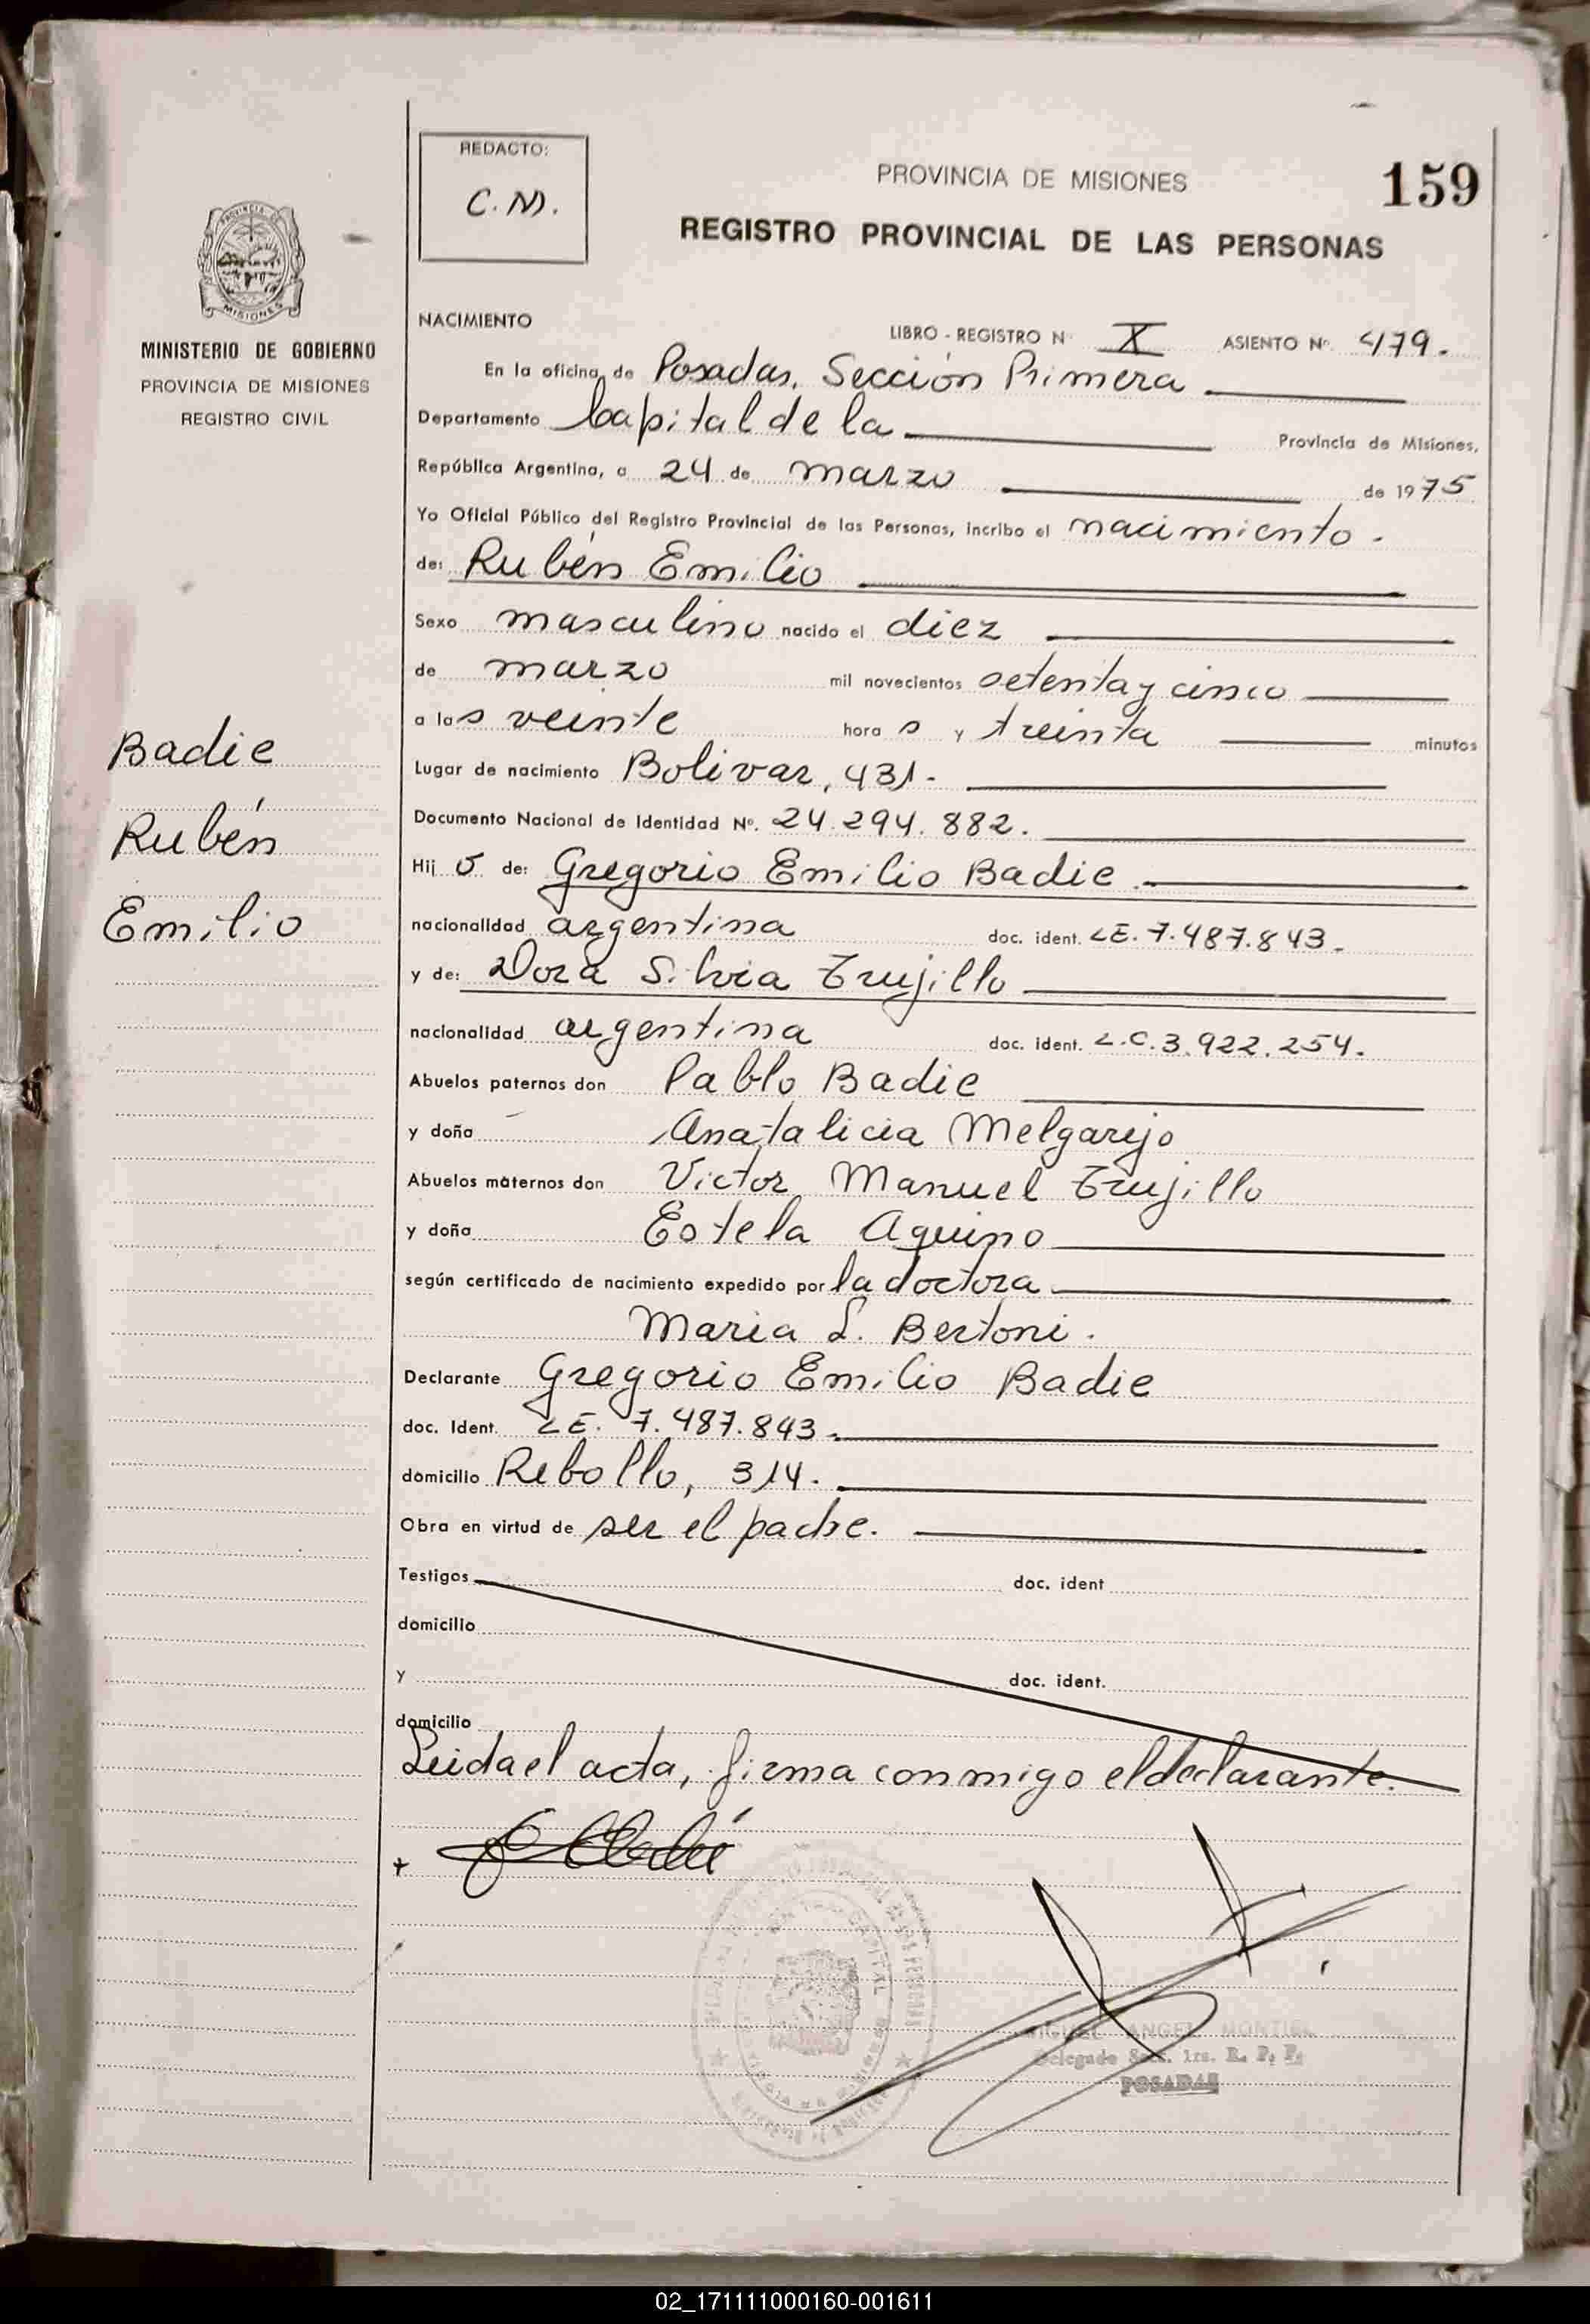 REDACTO:
C. N.
PROVINCIA DE MISIONES
159
REGISTRO PROVINCIAL DE LAS PERSONAS
PROVINCIA DE
MISIONES
MINISTERIO DE GOBIERNO
PROVINCIA DE MISIONES
REGISTRO CIVIL
Badie
Rubén
Emilio
NACIMIENTO
LIBRO - REGISTRO Nº X ASIENTO Nº 479.
En la oficina de Posadas, Sección Primera
Departamento Capital de la Provincia de Misiones,
República Argentina, a 24 de marzo de 1975
Yo Oficial Público del Registro Provincial de las Personas, incribo el nacimiento.
de: Rubén Emilio
Sexo masculino nacido el diez
de marzo mil novecientos setenta y cinco
a las veinte hora s y treinta minutos
Lugar de nacimiento Bolivar, 431.
Documento Nacional de Identidad Nº. 24.294.882.
Hij o de: Gregorio Emilio Badie
nacionalidad argentina doc. ident. LE. 7.487.843.
y de: Dora Silvia Trujillo
nacionalidad argentina doc. ident. L.C. 3.922.254.
Abuelos paternos don Pablo Badie
y doña Anatalicia Melgarejo
Abuelos maternos don Victor Manuel Trujillo
y doña Estela Aquino
según certificado de nacimiento expedido por la doctora
Maria L. Bertoni.
Declarante Gregorio Emilio Badie
doc. Ident. LE. 7.487.843.
domicilio Rebollo, 314.
Obra en virtud de ser el padre.
Testigos doc. ident
domicilio
y doc. ident.
domicilio
Leida el acta, firma conmigo el declarante.
MIGUEL ANGEL MONTIEL
Delegado Secc. 1ra. R. P. P.
POSADAS
02_171111000160-001611